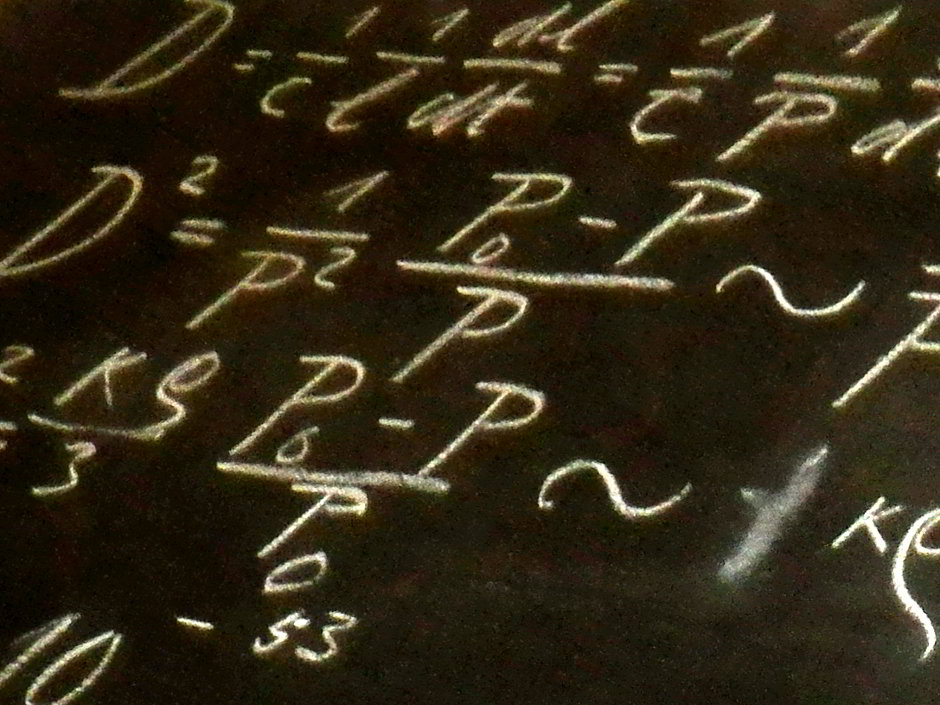 D = 1/c 1/l dl/dt = 1/c 1/P
D² = 1/P² (P₀ - P)/P ~
² = κρ/3 (P₀ - P)/P₀ ~ κρ
10⁻⁵³